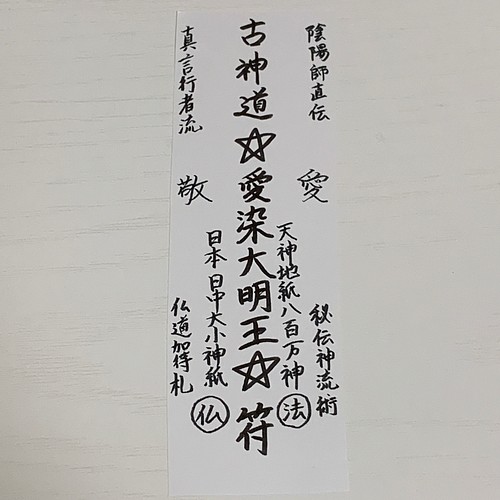 陰陽師直伝
秘伝神流術
愛
天神地紙八百万神
法
古神道☆愛染大明王☆符
敬
日本日中大小神紙
仏
真言行者流
仏道加持札